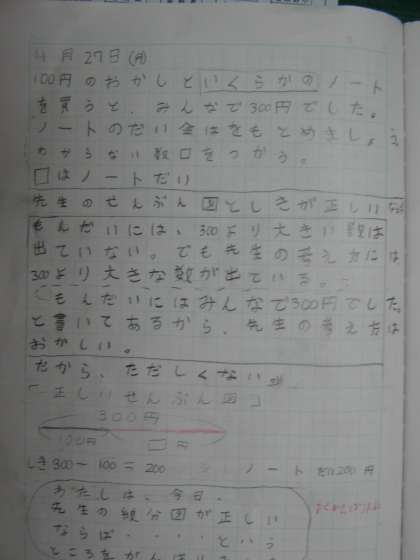 4月27日(月)
100円のおかしといくらかのノート
を買うと、みんなで300円でした。
ノートのだい金はをもとめましょう
わからない数□をつかう。
□はノートだい
先生のせんぶん図としきが正しいなら
もんだいには、300より大きい数は
出ていない。でも先生の考え方には
300より大きな数が出ている。
もんだいにはみんなで300円でした。
と書いてあるから、先生の考え方は
おかしい。
だから、ただしくない
「正しいせんぶん図」
300円
100円 □円
しき300-100=200 ノートだい200円
わたしは、今日、
先生の線分図が正しい
ならば・・・・という
ところをがんばりました